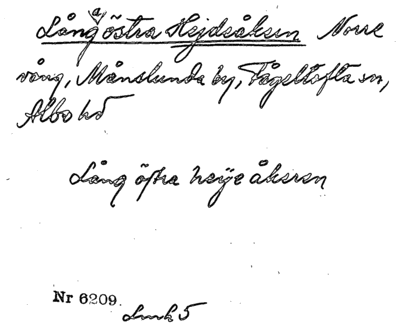 Långa östra Hejdsåkern Norre
vång, Månslunda by, Fågeltofta sn,
Albo hd
Lång östra heije åkeren
Nr 6209.